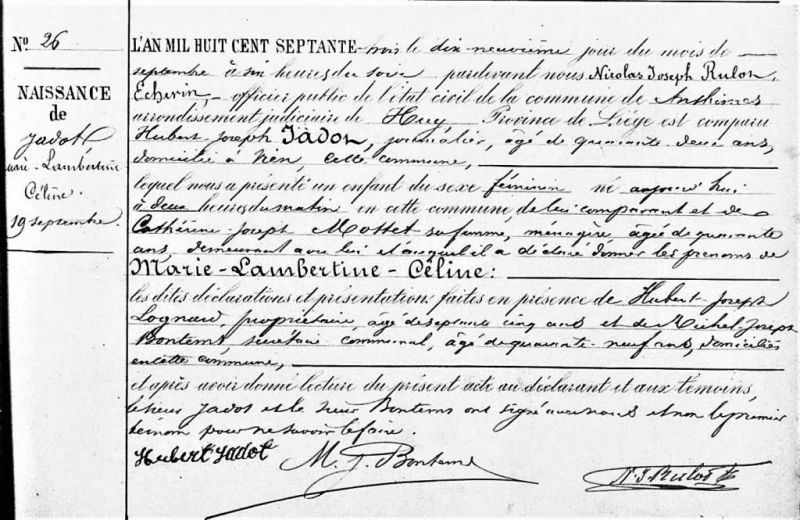 N° 26
NAISSANCE
de
Jadot,
Marie-Lambertine
Céline.
19 septembre.
L'AN MIL HUIT CENT SEPTANTE-trois le dix-neuvième jour du mois de
septembre à six heures du soir pardevant nous Nicolas Joseph Rulot,
Echevin, officier public de l'état civil de la commune de Anthisnes
arrondissement judiciaire de Huy Province de Liége est comparu
Hubert-Joseph JADOT, journalier, âgé de quarante deux ans,
domicilié à Vien cette commune,
lequel nous a présenté un enfant du sexe féminin né aujourd'hui
à deux heures du matin en cette commune de lui comparant et de
Cathérine-Joseph Mottet sa femme, ménagère, âgée de quarante
ans, demeurant avec lui et auquel il a déclaré donner les prénoms de
Marie-Lambertine-Céline:
les dites déclarations et présentation faites en présence de Hubert-Joseph
Lognard, propriétaire, âgé de septante cinq ans et de Michel-Joseph
Bontems, secrétaire communal, âgé de quarante-neuf ans, domiciliés
en cette commune,
et après avoir donné lecture du présent acte au déclarant et aux témoins,
le sieur Jadot et le sieur Bontems ont signé avec nous et non le premier
témoin pour ne savoir le faire.
Hubert Jadot M. J. Bontems N. J. Rulot